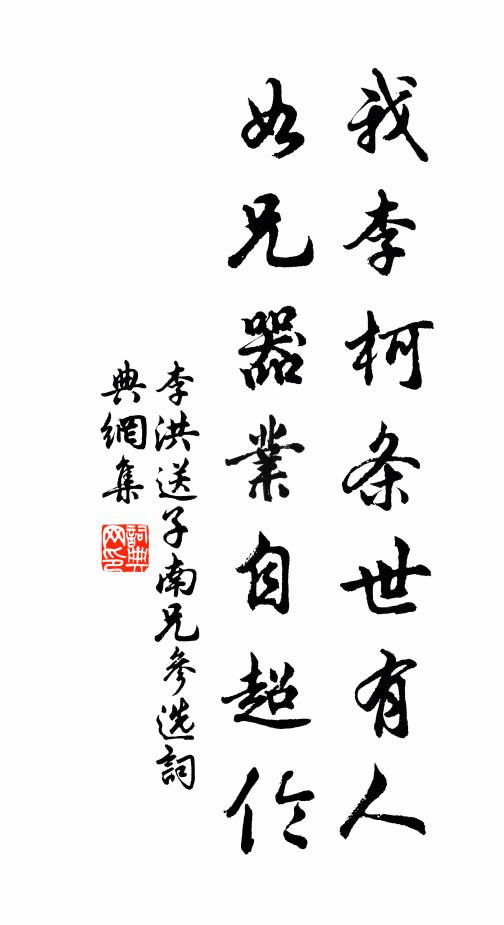 我李柯条世有人
如兄器業自超伦
李洪送子南兄參选詞
典網集
詞典
网印